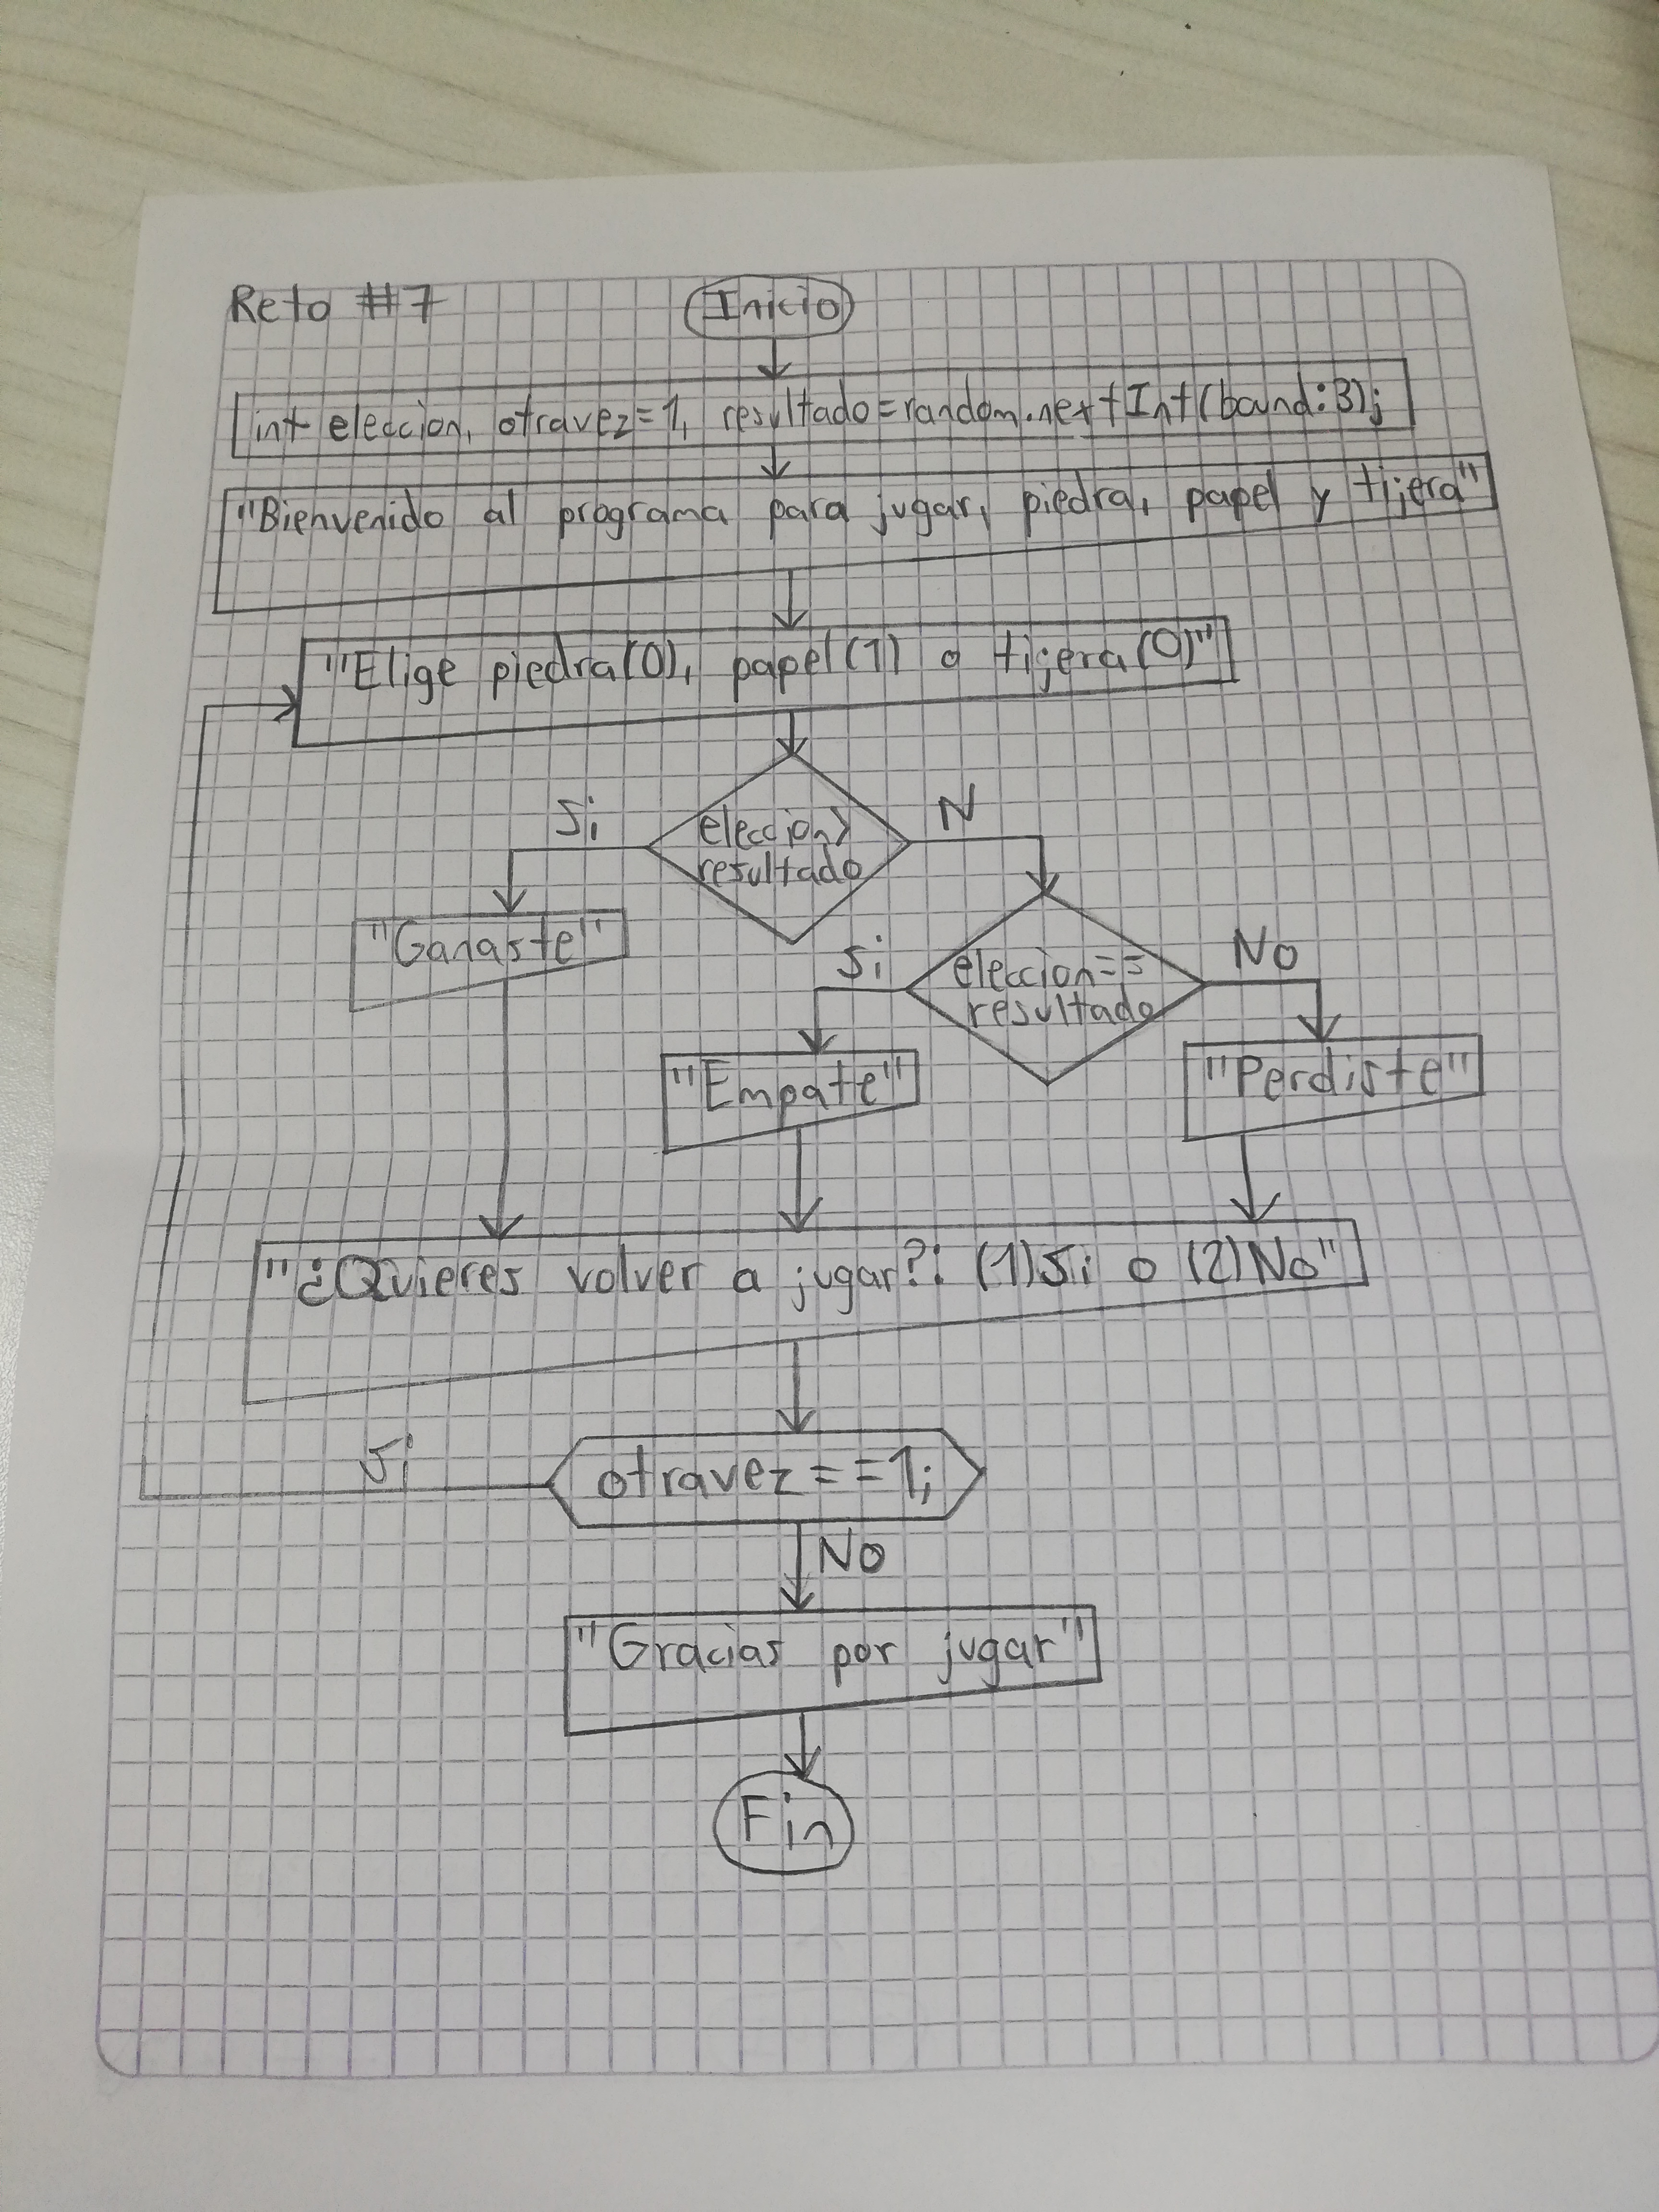 Reto #7
Inicio
int eleccion, otravez=1, resultado=random.nextInt(bound:3);
"Bienvenido al programa para jugar, piedra, papel y tijera"
"Elige piedra(0), papel(1) o tijera(0)"
Si
eleccion>
resultado
N
"Ganaste"
Si
eleccion==
resultado
No
"Empate"
"Perdiste"
"¿Quieres volver a jugar?: (1)Si o (2)No"
Si
otravez==1;
No
"Gracias por jugar"
Fin